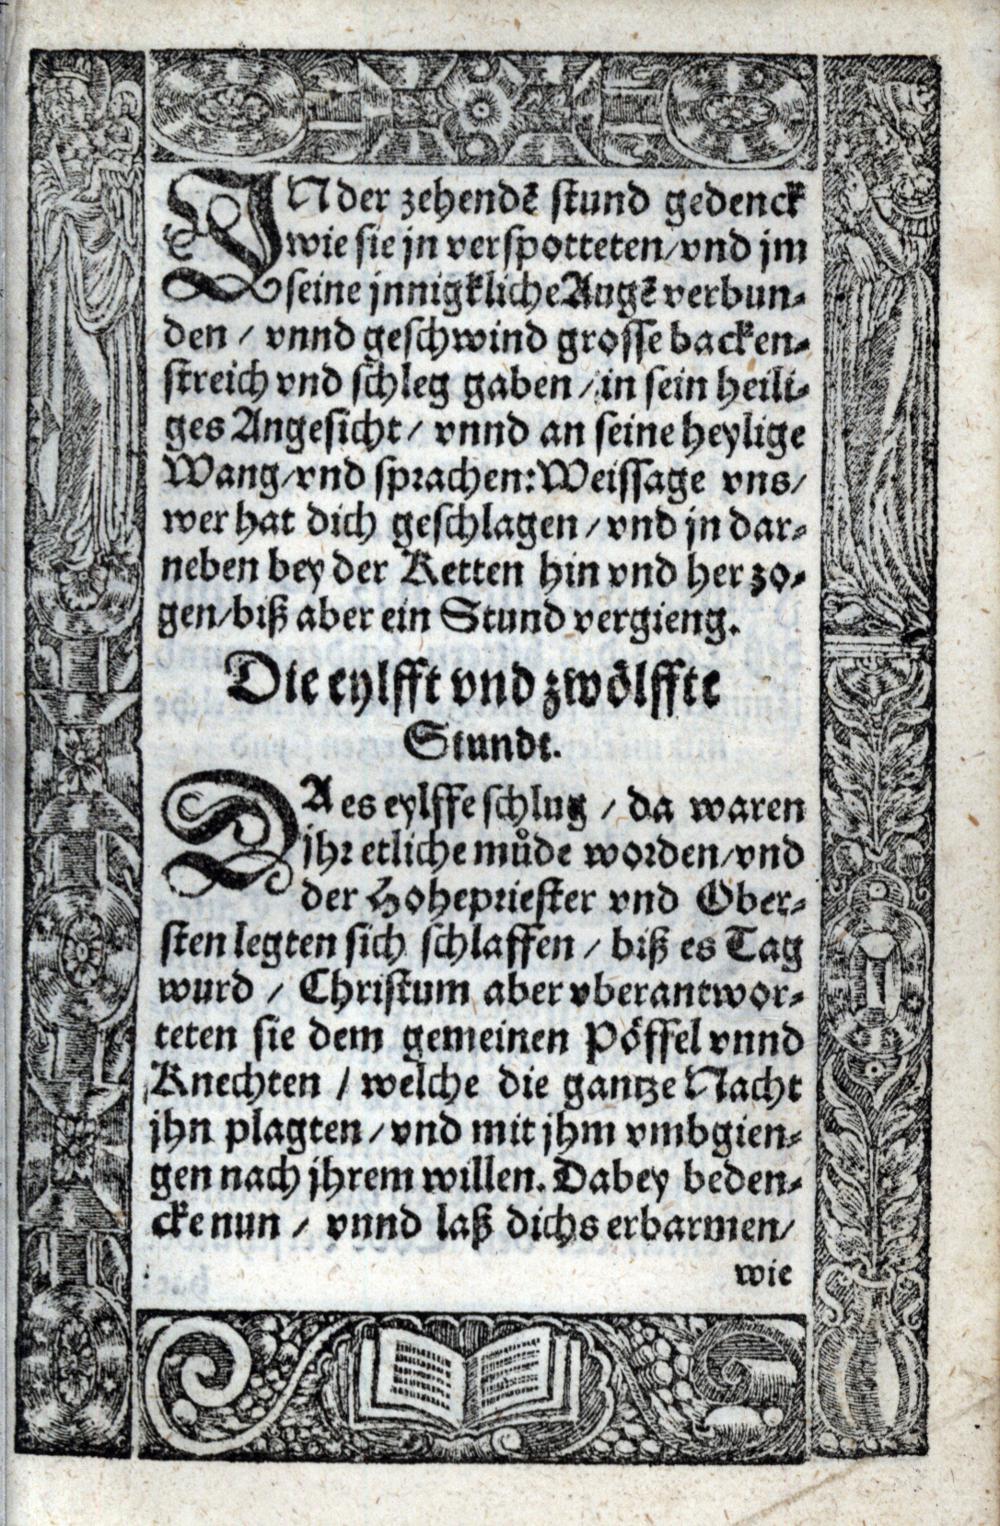 IN der zehendẽ stund gedenck
wie sie jn verspotteten/vnd jm
seine jnnigkliche Augẽ verbun-
den / vnnd geschwind grosse backen-
streich vnd schleg gaben / in sein heili-
ges Angesicht / vnnd an seine heylige
Wang/vnd sprachen: Weissage vns/
wer hat dich geschlagen / vnd jn dar-
neben bey der Ketten hin vnd her zo-
gen/biß aber ein Stund vergieng.
Die eylfft vnd zwölffte
Stundt.
DA es eylffe schlug / da waren
jhr etliche můde worden/vnd
der Hohepriester vnd Ober-
sten legten sich schlaffen / biß es Tag
wurd / Christum aber vberantwor-
teten sie dem gemeinen Pöffel vnnd
Knechten / welche die gantze Nacht
jhn plagten / vnd mit jhm vmbgien-
gen nach jhrem willen. Dabey beden-
cke nun / vnnd laß dichs erbarmen/
wie